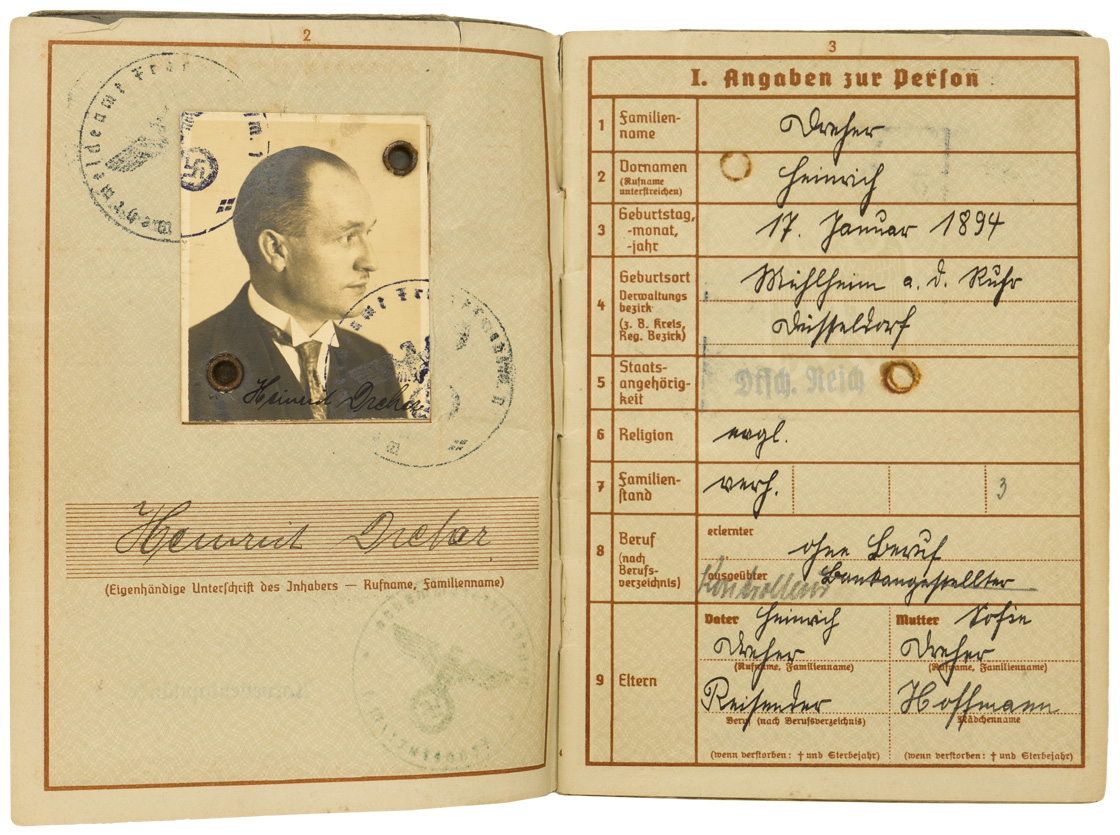 2
Wehrmeldeamt
Heinrich Dreher
Heinrich Dreher
(Eigenhändige Unterschrift des Inhabers — Rufname, Familienname)
3
I. Angaben zur Person
1 Familien-
name
Dreher
2 Vornamen
(Rufname
unterstreichen)
Heinrich
3 Geburtstag,
-monat,
-jahr
17. Januar 1894
4 Geburtsort
Verwaltungs
bezirk
(z. B. Kreis,
Reg. Bezirk)
Mühlheim a. d. Ruhr
Düsseldorf
5 Staats-
angehörig-
keit
Dtsch. Reich
6 Religion
evgl.
7 Familien-
stand
verh.
3
8 Beruf
(nach
Berufs-
verzeichnis)
erlernter
ohne Beruf
ausgeübter Bankangestellter
9 Eltern
Vater Heinrich
Dreher
(Rufname, Familienname)
Reisender
Beruf (nach Berufsverzeichnis)
(wenn verstorben: † und Sterbejahr)
Mutter Sofie
Dreher
(Rufname, Familienname)
Hoffmann
Mädchenname
(wenn verstorben: † und Sterbejahr)